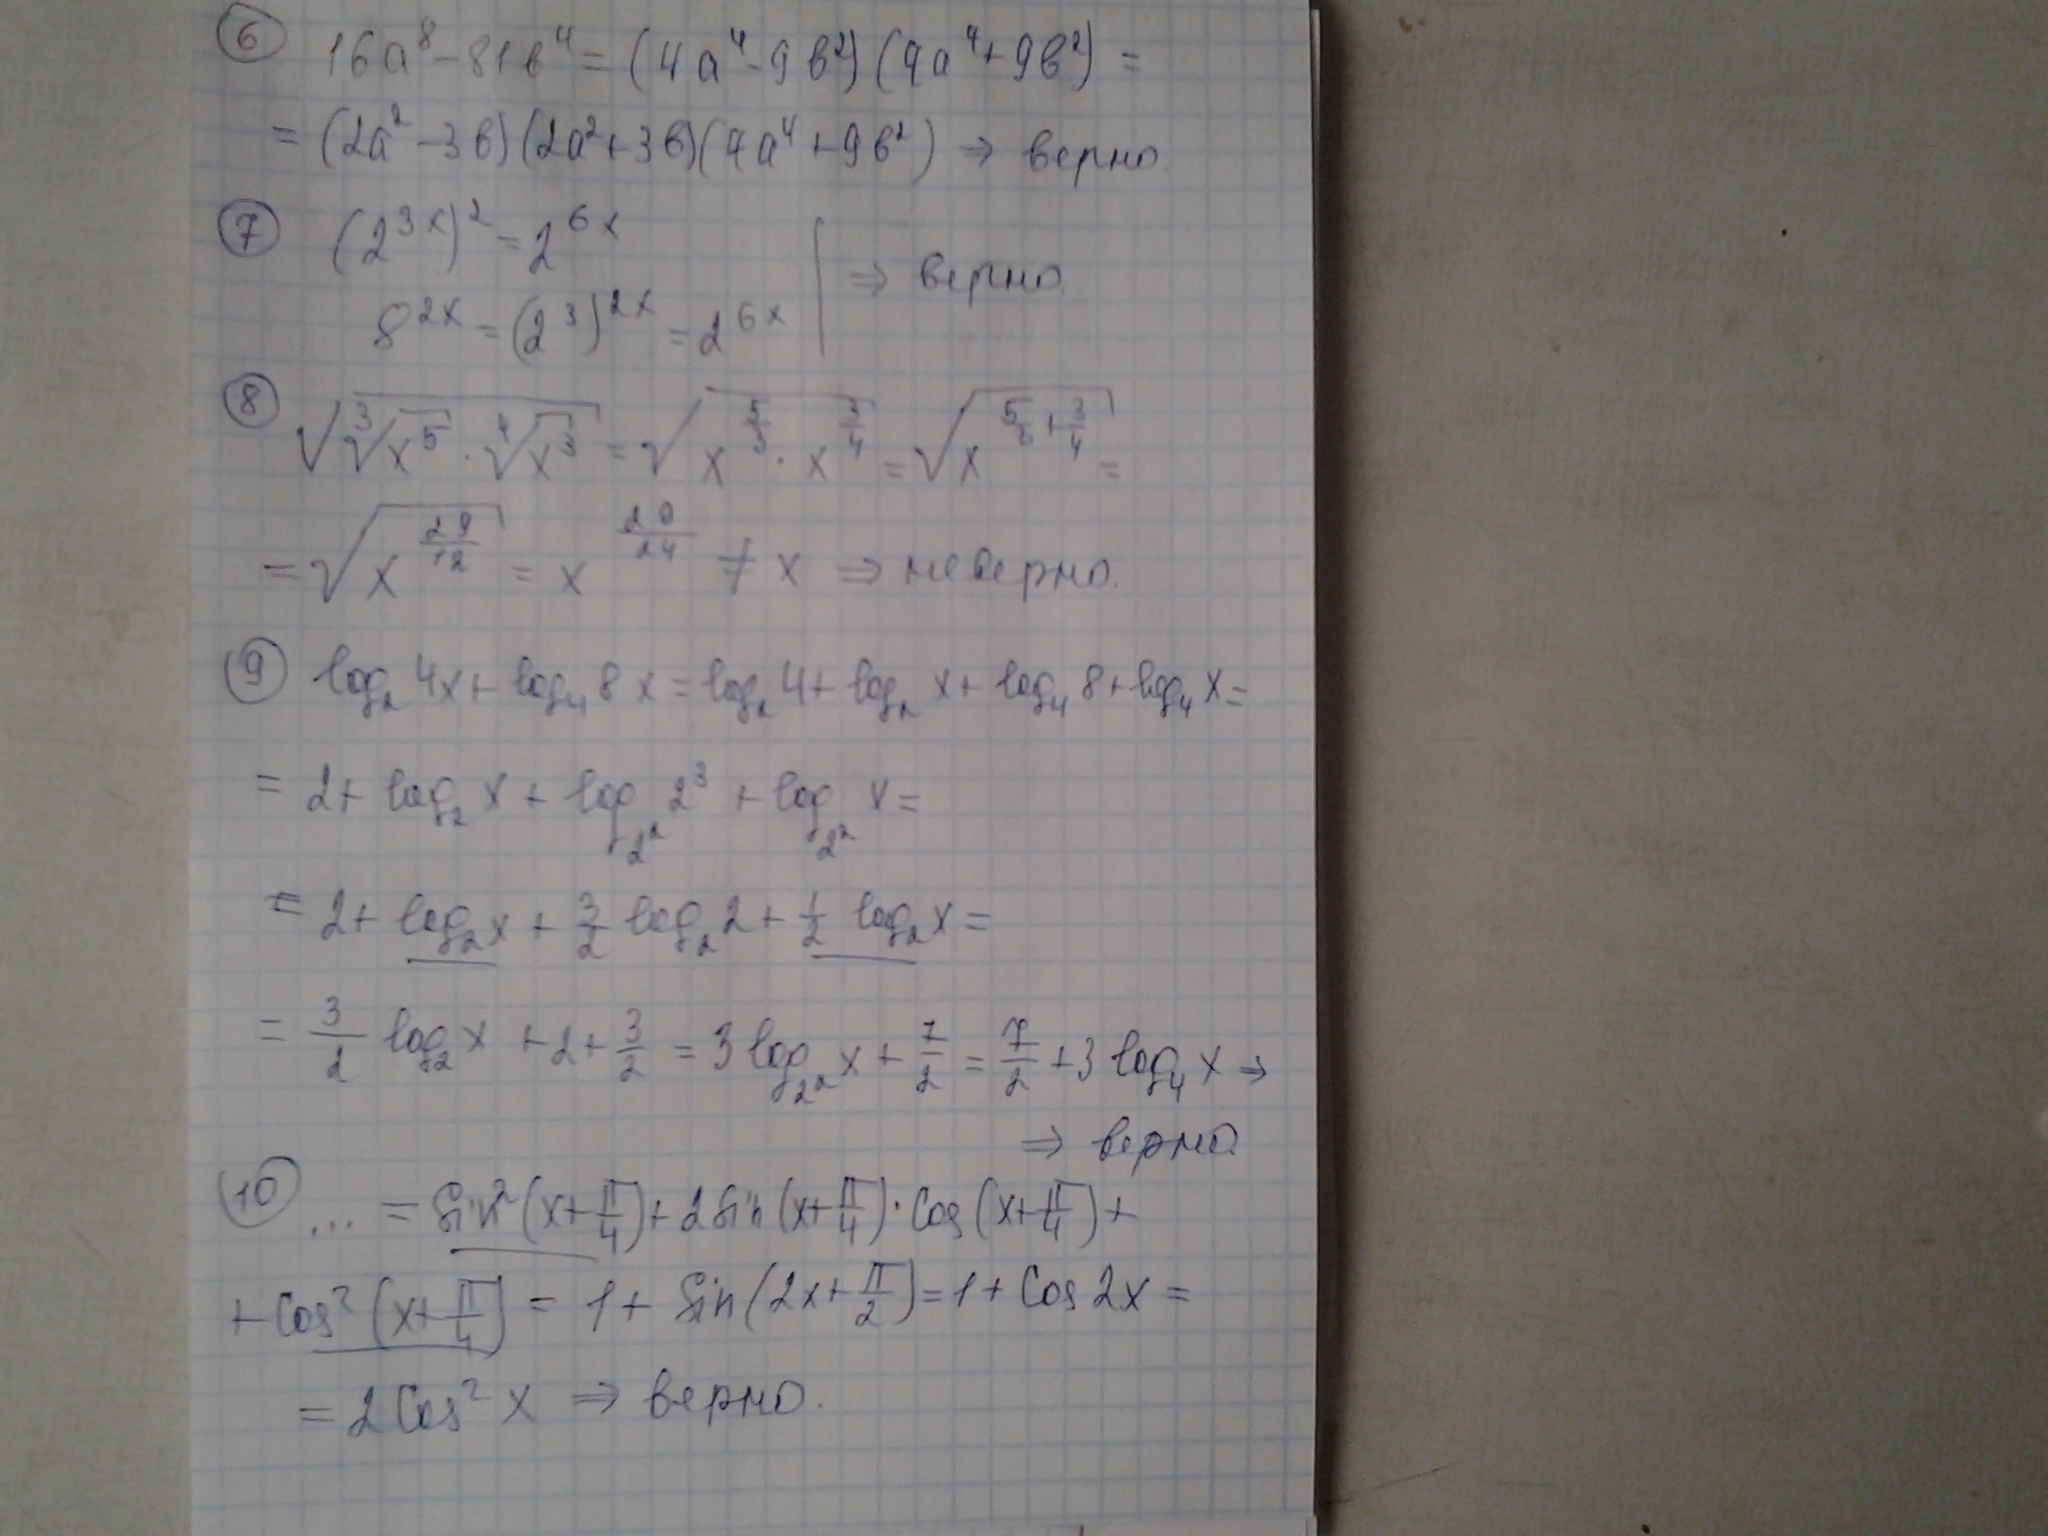 ⑥ 16a⁸ - 81b⁴ = (4a⁴ - 9b²)(4a⁴ + 9b²) =
= (2a² - 3b)(2a² + 3b)(4a⁴ + 9b²) ⇒ верно.
⑦ (2^{3x})² = 2^{6x}
⇒ верно.
8^{2x} = (2³)^{2x} = 2^{6x}
⑧ √(∛(x⁵) · ∜(x³)) = √(x^{5/3} · x^{3/4}) = √(x^{5/3 + 3/4}) =
= √(x^{29/12}) = x^{29/24} ≠ x ⇒ неверно.
⑨ log₂ 4x + log₄ 8x = log₂ 4 + log₂ x + log₄ 8 + log₄ x =
= 2 + log₂ x + log_{2²} 2³ + log_{2²} x =
= 2 + log₂ x + 3/2 log₂ 2 + 1/2 log₂ x =
= 3/2 log₂ x + 2 + 3/2 = 3 log_{2²} x + 7/2 = 7/2 + 3 log₄ x ⇒
⇒ верно.
⑩ ... = Sin²(x + π/4) + 2 Sin(x + π/4) · Cos(x + π/4) +
+ Cos²(x + π/4) = 1 + Sin(2x + π/2) = 1 + Cos 2x =
= 2 Cos² x ⇒ верно.